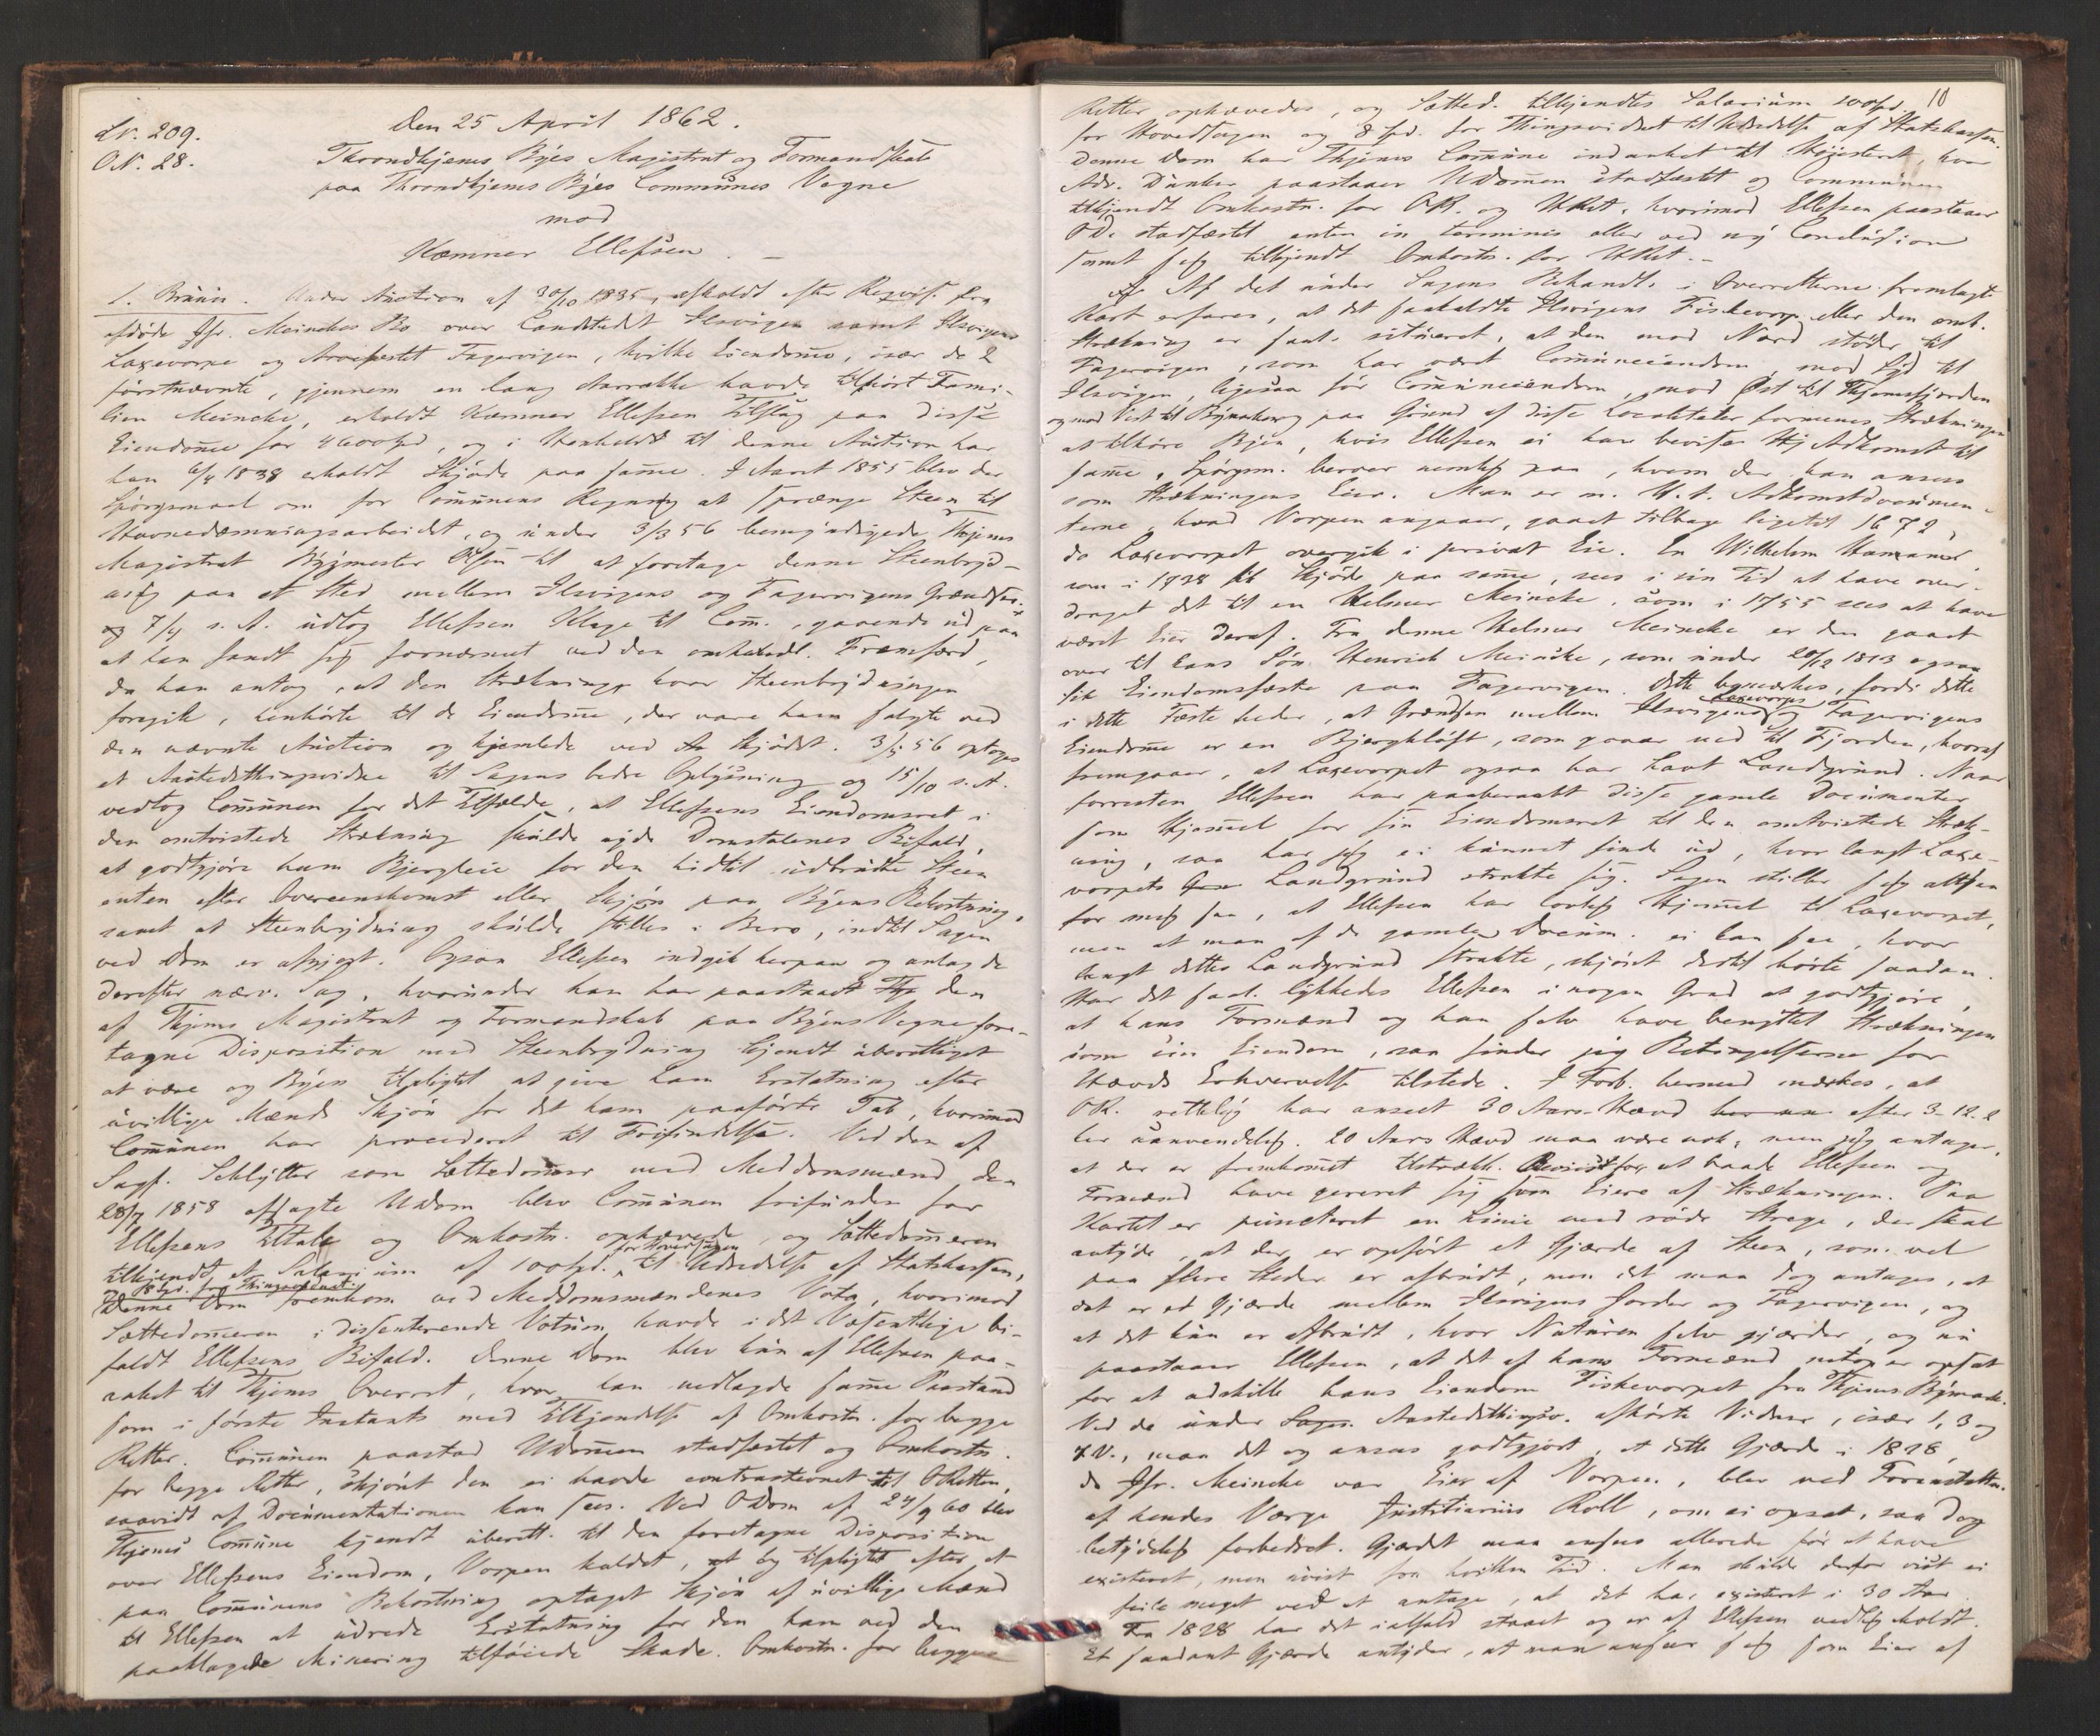 LN. 209.
ON. 28.
Den 25 April 1862.
Throndhjems Byes Magistrat og Formandskab
paa Throndhjems Byes Communes Vegne
mod
Kæmner Ellefsen. –
1. Brüün. Under Auction af 30/10 1835, afholdt efter Reqvis. fra
afdøde Jfr. Meinckes Bo over Landstedet Ilsvigen samt Ilsvigens
Laxevorpe og Arvefæstet Fagervigen, hvilke Eiendomme, især de 2
førstnævnte, gjennem en lang Aarrække havde tilhørt Fami-
lien Meincke, erholdt Kæmner Ellefsen Tilslag paa disse
Eiendomme for 4600 Spd, og i Henhold til denne Auction har
han 6/4 1838 erholdt Skjøde paa samme. I Aaret 1855 blev der
Spørgsmaal om for Communens Regning at sprænge Steen til
Havnedæmningsarbeidet, og under 3/3 56 bemyndigede Thjems
Magistrat Bygmester Olsen til at foretage denne Steenbryd-
ning paa et Sted mellem Ilsvigens og Fagervigens Grændser.
7/4 s. A. udtog Ellefsen Klage til Com., gaaende ud paa
at han fandt sig fornærmet ved den omhandl. Fremfærd,
da han antog, at den Strækning, hvor Steenbrydningen
foregik, henhørte til de Eiendomme, der vare ham solgte ved
den nævnte Auction og hjemlede ved Skjødet. 3/5 56 optoges
et Aastedsthingsvidne til Sagens bedre Oplysning og 15/10 s. A.
vedtog Communen for det Tilfælde, at Ellefsens Eiendomsret i
den omtvistede Strækning skulde nyde Domstolenes Bifald,
at godtgjøre ham Bjergleie for den hidtil udbrudte Steen
enten efter Overeenskomst eller Skjøn paa Byens Bekostning,
samt at Steenbrydning skulde stilles i Bero, indtil Sagen
ved Dom er afgjort. Ogsaa Ellefsen indgik herpaa og anlagde
derefter nærv. Sag, hvorunder han har paastaaet den
af Thjems Magistrat og Formandskab paa Byens Vegne fore-
tagne Disposition med Steenbrydning kjendt uberettiget
at være og Byen tilpligtet at give ham Erstatning efter
uvillige Mænds Skjøn for det ham paaførte Tab, hvorimod
Communen har procederet til Frifindelse. Ved den af
Sagf. Schlytter som Sættedommer med Meddomsmænd den
28/7 1858 afsagte Udom blev Communen frifunden for
Ellefsens Tiltale og Omkostn. ophævede, og Sættedommeren
tilkjendt et Salarium af 100 Spd. for Hovedsagen til Udredelse af Statskassen,
og 8 Spd. for Thingsvidnet
Denne Dom fremkom ved Meddomsmændenes Vota, hvorimod
Sættedommeren i dissenterende Votum havde i det Væsentlige bi-
faldt Ellefsens Bifald. Denne Dom blev kun af Ellefsen paa-
anket til Thjems Overret, hvor han nedlagde samme Paastand
som i første Instants med Tilkjendelse af Omkostn. for begge
Retter. Communen paastod Udommen stadfæstet og Omkostn.
for begge Retter, skjønt den ei havde contrastevnet til ORetten,
saavidt af Documentationen kan sees. Ved ODom af 24/9 60 blev
Thjems Commune kjendt uberett. til den foretagne Disposition
over Ellefsens Eiendom, Vorpen kaldet, og tilpligtet efter et
paa Communens Bekostning optaget Skjøn af uvillige Mænd
til Ellefsen at udrede Erstatning for den ham ved den
paaklagede Minering tilføiede Skade. Omkostn. for begge
10
Retter ophævedes, og Sætted. tilkjendtes Salarium 100 Spd.
for Hovedsagen og 8 Spd. for Thingsvidnet til Udredelse af Statskassen.
Denne Dom har Thjems Commune indanket til Høiesteret, hvor
Adv. Dunker paastaaer Udommen stadfæstet og Communen
tilkjendt Omkostn. for OR. og HRet, hvorimod Ellefsen paastaaer
OD. stadfæstet enten in terminis eller ved ny Conclusion
samt sig tilkjendt Omkostn. for HRet. –
Af det under Sagens Behandl. i Overretterne fremlagte
Kart erfares, at det saakaldte Ilsvigens Fiskevorp eller den omtv.
Strækning er saal. situeret, at den mod Nord støder til
Fagervigen, som har været Communeeiendom, mod Syd til
Ilsvigen, ligesaa før Communeeiendom, mod Øst til Thjemsfjorden
og mod Vest til Bymarken, og paa Grund af disse Localiteter formenes Strækningen
at tilhøre Byen, hvis Ellefsen ei kan bevise sig Adkomst til
samme. Spørgsm. beroer nemlig paa, hvem der kan ansees
som Strækningens Eier. Man er m. H. t. Adkomstdocumen-
terne, hvad Vorpen angaaer, gaaet tilbage ligetil 1672,
da Laxevorpet overgik i privat Eie. En Wilhelm
som i 1728 fik Skjøde paa samme, sees i sin Tid at have over-
draget det til en Helmer Meincke, som i 1755 sees at have
været Eier deraf. Fra denne Helmer Meincke er den gaaet
over til hans Søn Henrich Meincke, som under 20/12 1813 ogsaa
fik Eiendomsfæste paa Fagervigen. Dette bemærkes, fordi dette
i dette Fæste heder, at Grændsen mellem Ilsvigens Laxevorps og Fagervigens
Eiendomme er en Bjergkløft, som gaaer ned til Fjorden, hvoraf
fremgaaer, at Laxevorpet ogsaa har havt Landgrund. Naar
forresten Ellefsen har paaberaabt disse gamle Documenter
som Hjemmel for sin Eiendomsret til den omtvistede Stræk-
ning, saa har jeg ei kunnet finde ud, hvor langt Laxe-
vorpets Landgrund strakte sig. Sagen stiller sig altsaa
for mig saa, at Ellefsen har lovlig Hjemmel til Laxevorpet,
men at man af de gamle Docum. ei kan see, hvor
langt dettes Landgrund strakte, skjønt dertil hørte saadan.
Har det saal. lykkedes Ellefsen i nogen Grad at godtgjøre,
at hans Formænd og han selv have benyttet Strækningen
som sin Eiendom, saa finder jeg Betingelserne for
Hævds Erhvervelse tilstede. I Forb. hermed mærkes, at
OR. rettelig har anseet 30 Aars Hævd efter 3-12-2
her uanvendelig. 20 Aars Hævd maa være nok; men jeg antager,
at der er fremkommet tilstrækk. Beviist for, at baade Ellefsen og
Formænd have gereret sig som Eiere af Strækningen. Paa
Kartet er puncteret en Linie med røde Strege, der skal
antyde, at der er opført et Gjærde af Steen, som vel
paa flere Steder er afbrudt, men det maa dog antages, at
det er et Gjærde mellem Ilsvigens Jorder og Fagervigen, og
at det kun er afbrudt, hvor Naturen selv gjærder, og nu
paastaaer Ellefsen, at det af hans Formænd netop er opsat
for at adskille hans Eiendom Fiskevorpet fra Thjems Bymark.
Ved de under Aastedsthingsv. afhørte Vidner, især 1, 3 og
7 V., maa det og ansees godtgjort, at dette Gjærde i 1828,
da Jfr. Meincke var Eier af Vorpen, blev ved Foranstaltn.
af hendes Værge Justitiarius Roll, om ei opsat, saa dog
betydelig forbedret. Gjærdet maa ansees allerede før at have
existeret, men uvist fra hvilken Tid. Man skulde derfor vist ei
feile meget ved at antage, at det har existeret i 30 Aar
Fra 1828 har det ialfald staaet og er af Ellefsen vedlig holdt.
Et saadant Gjærde antyder, at man anseer sig som Eier af